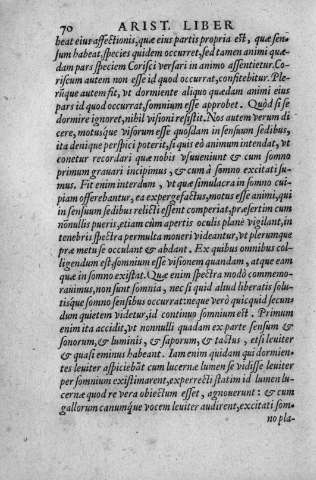 70 ARIST. LIBER
beat eius affectionis, quæ eius partis propria est, quæ sen-
sum habeat, species quidem occurret, sed tamen animi quæ-
dam pars speciem Corisci versari in animo assentietur. Co-
riscum autem non esse id quod occurrat, confitebitur. Ple-
riíque autem fit, vt dormiente aliquo quædam animi eius
pars id quod occurrat, somnium esse approbet. Quòd si se
dormire ignoret, nihil visioni resistit. Nos autem verum di
cere, motusque visorum esse quosdam in sensuum sedibus,
ita denique perspici poterit, si quis eò animum intendat, vt
conetur recordari quæ nobis vsuueniunt & cum somno
primum grauari incipimus, & cum à somno excitati su-
mus. Fit enim interdum, vt quæ simulacra in somno cui-
piam offerebantur, ea expergefactus, motus esse animi, qui
in sensuum sedibus relicti essent comperiat, præsertim cum
nonullis pueris, etiam cùm apertis oculis planè vigilant, in
tenebris spectra permulta moneri videantur, vt plerumque
præ metu se occulant & abdant. Ex quibus omnibus col-
ligendum est, somnium esse visionem quandam, atque eam
quæ in somno existat. Quæ enim spectra modò commemo-
rauimus, non sunt somnia, nec si quid aliud liberatis solu-
tisque somno sensibus occurrat: neque verò quicquid secun-
dum quietem videtur, id continuo somnium est. Primum
enim ita accidit, vt nonnulli quadam ex parte sensum &
sonorum, & luminis, & saporum, & tactus, etsi leuiter
& quasi eminus habeant. Iam enim quidam qui dormien-
tes leuiter aspiciebāt cum lucernæ lumen se vidisse leuiter
per somnium existimarent, experrecti statim id lumen lu-
cernæ quod re vera obiectum esset, agnouerunt: & cum
gallorum canumque vocem leuiter audirent, excitati som-
no pla-